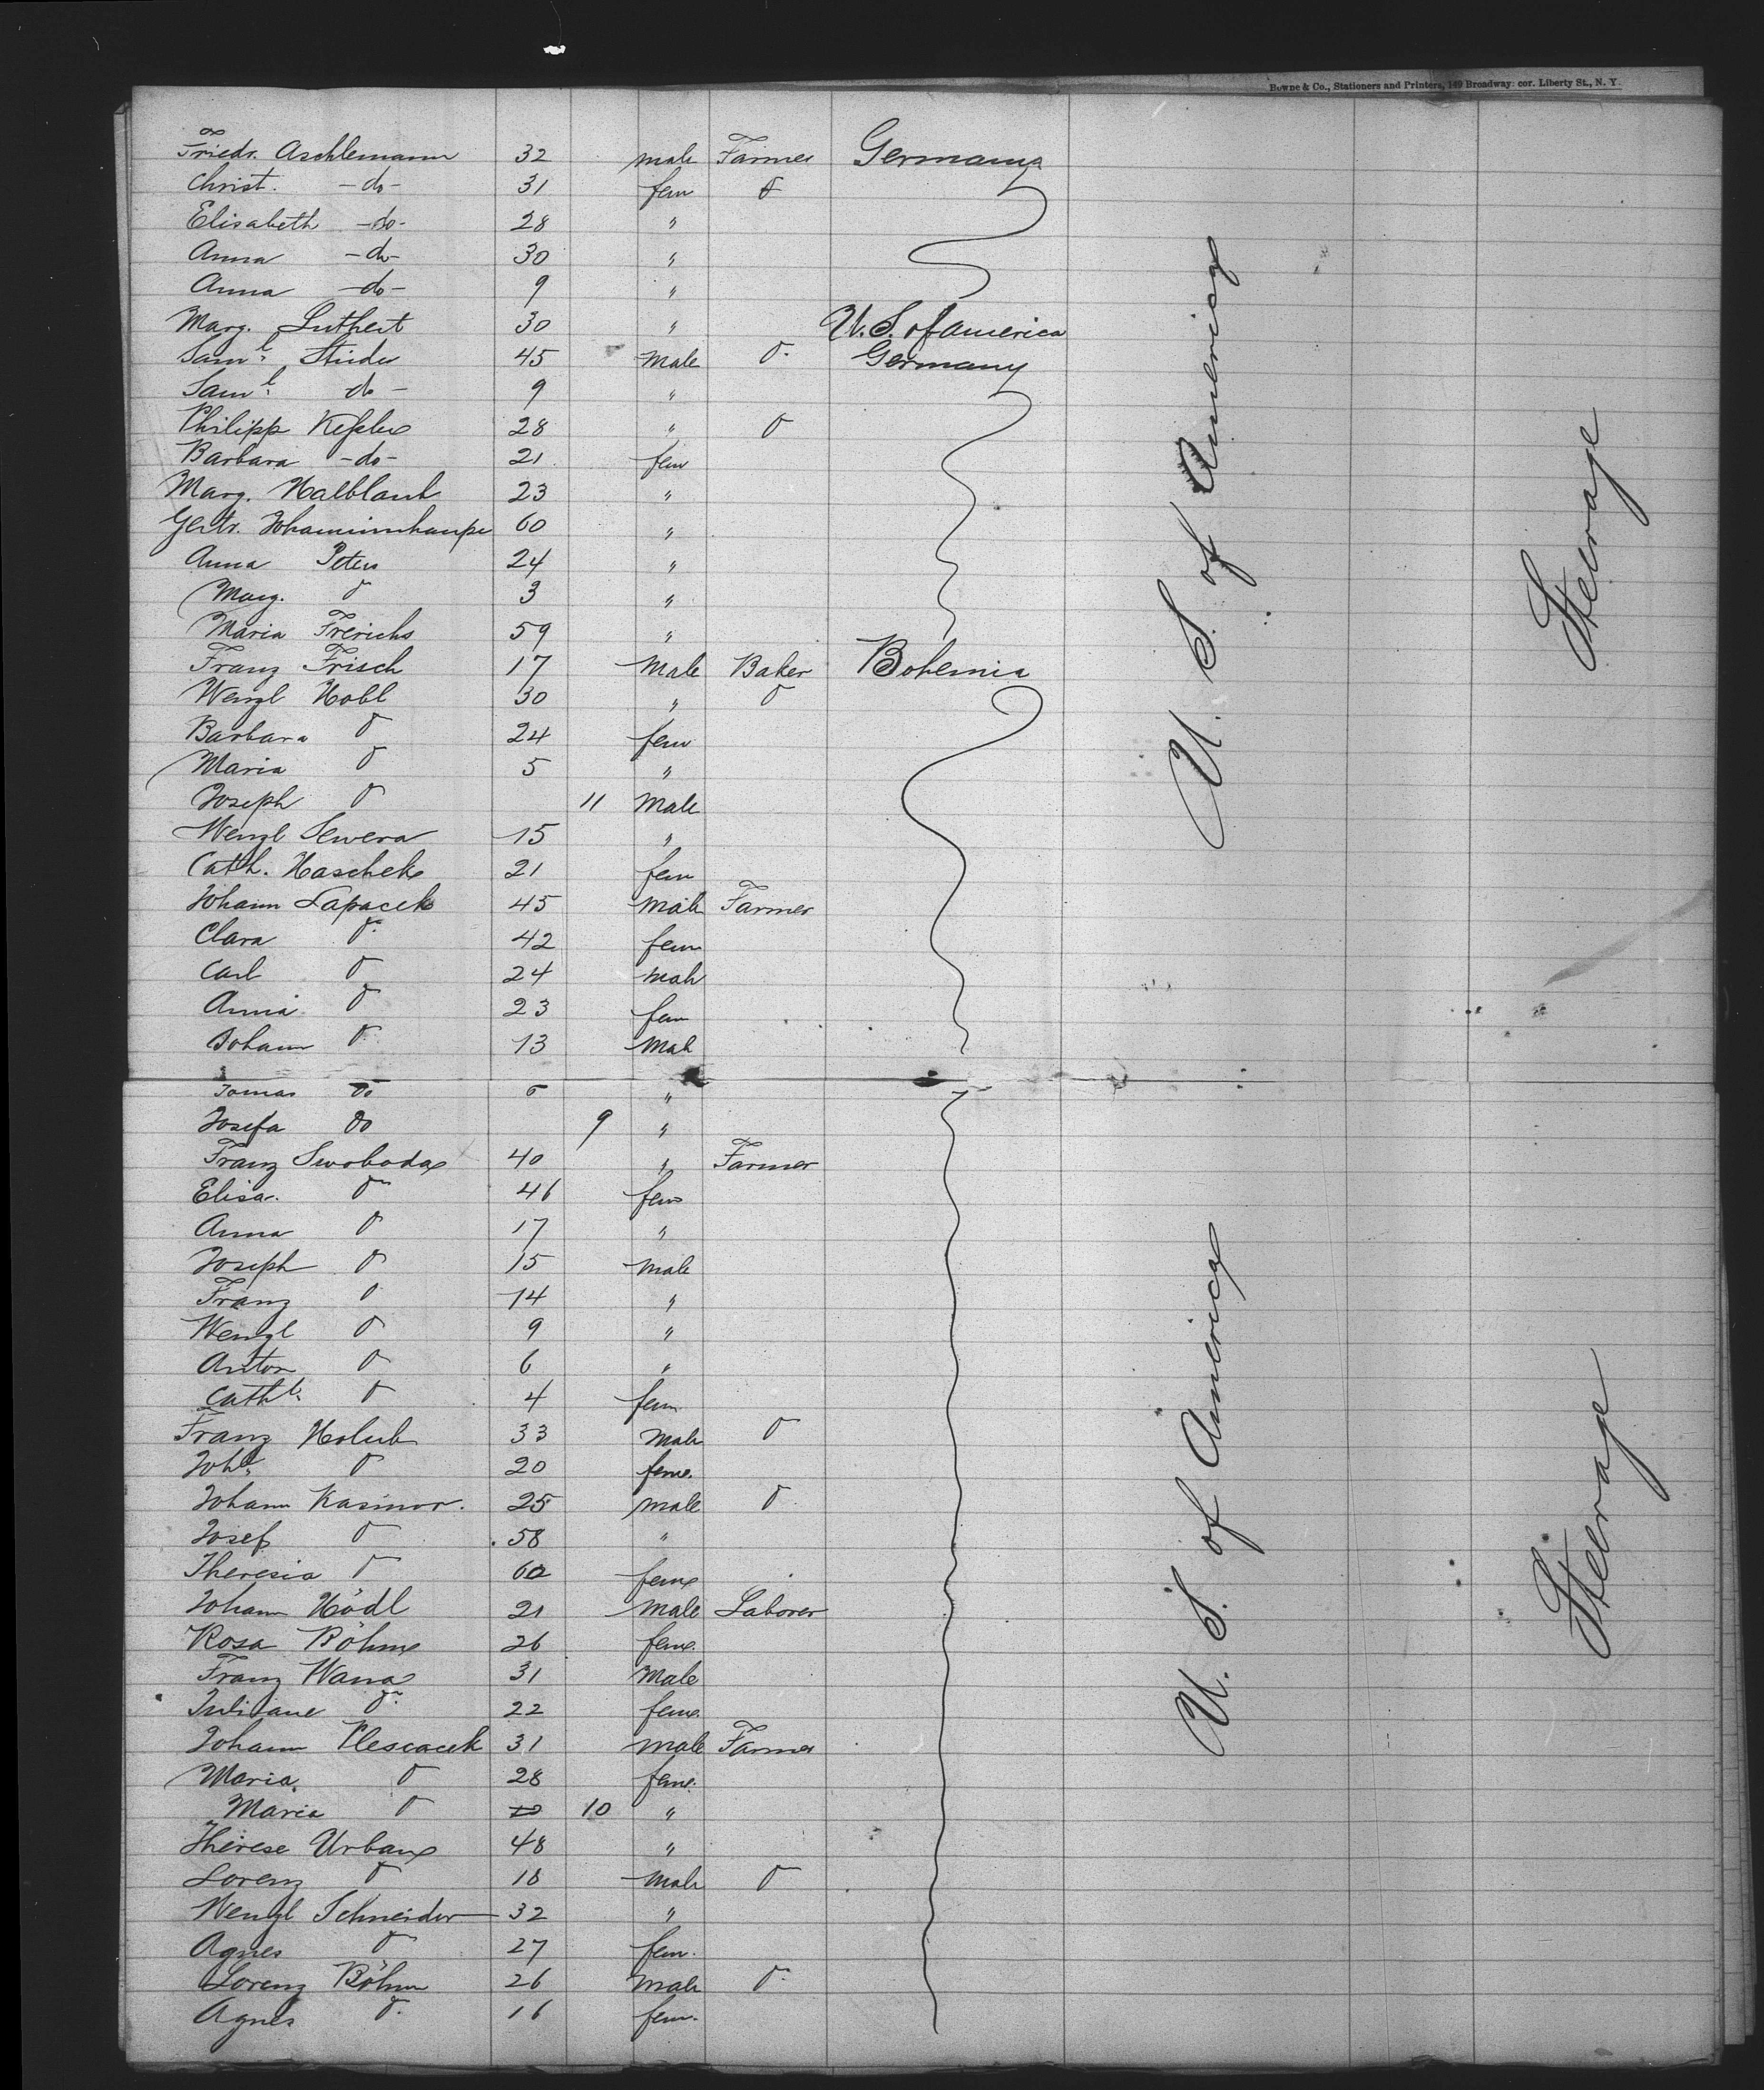 Bowne & Co., Stationers and Printers, 149 Broadway. cor. Liberty St., N. Y.
Friedr. Aschlemann 32 male Farmer Germany
Christ. -do- 31 fem do
Elisabeth -do- 28 "
Anna -do- 30 "
Anna -do- 9 "
Marg. Luthert 30 " U. S. of America
Saml. Studer 45 Male do Germany
Saml. do - 9 "
Philipp Kessler 28 " do
Barbara -do- 21 fem
Marg. Halblaub 23 "
Gertr. 60 "
Anna Peters 24 "
Marg. do 3 "
Maria Frerichs 59 "
Franz Frisch 17 Male Baker Bohemia
Wenzl Hobl 30 " do
Barbara do 24 fem
Maria do 5 "
Joseph do 11 Male
Wenzl Sewera 15 "
Cath. Haschek 21 fem
Johann Lapacek 45 Male Farmer
Clara do 42 fem
Carl do 24 Male
Anna do 23 fem
Johann do 13 Male
U. S. of America
Steerage
Tomas do 6 "
Josefa do 9 "
Franz Swoboda 40 " Farmer
Elisa. do 46 fem
Anna do 17 "
Joseph do 15 Male
Franz do 14 "
Wenzl do 9 "
Anton do 6 "
Cath. do 4 fem
Franz Holub 33 Male do
Joha. do 20 fem.
Johann Kasimor. 25 male do
Josef do 58 "
Theresia do 60 fem
Johann Hödl 21 Male Laborer
Rosa Böhm 26 fem.
Franz Wana 31 Male
Juliane do 22 fem.
Johann Plescacek 31 male Farmer
Maria do 28 fem.
Maria do 10 "
Therese Urban 48 "
Lorenz do 18 Male do
Wenzl Schneider 32 "
Agnes do 27 fem.
Lorenz Böhm 26 Male do
Agnes do 16 fem.
U. S. of America
Steerage